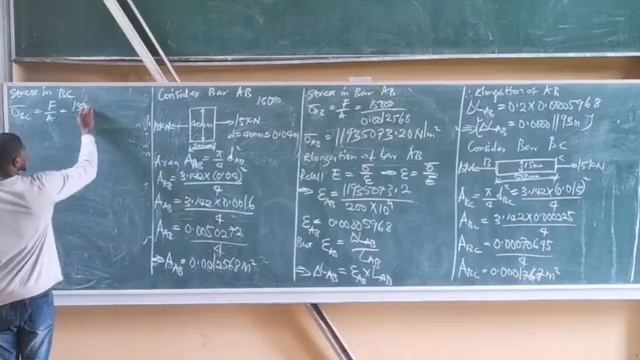 Stress in BC
σBC = F/A = 150
Consider Bar AB
15000
40mm
15KN
d=40mm=0.04m
Area AAB = π/4 d²AB
AAB = 3.142×(0.04)²/4
AAB = 3.142×0.0016/4
AAB = 0.0050272/4
⇒ AAB = 0.0012568m²
Stress in Bar AB
σAB = F/A = 15000/0.0012568
σAB = 11935073.20N/m²
Elongation of bar AB
Recall E = σ/ε ⇐ ε = σ/E
⇒ εAB = 11935073.2/200×10⁹
εAB = 0.00005968
But εAB = ΔLAB/LAB
⇒ ΔLAB = εAB × LAB
∴ elongation of AB
ΔLAB = 0.2×0.00005968
ΔLAB = 0.00001193m
Consider Bar BC
B C
15mm
15KN
ABC = π/4 d²BC = 3.142×(0.015)²/4
ABC = 3.142×0.000225/4
ABC = 0.00070695/4
ABC = 0.0001767m²